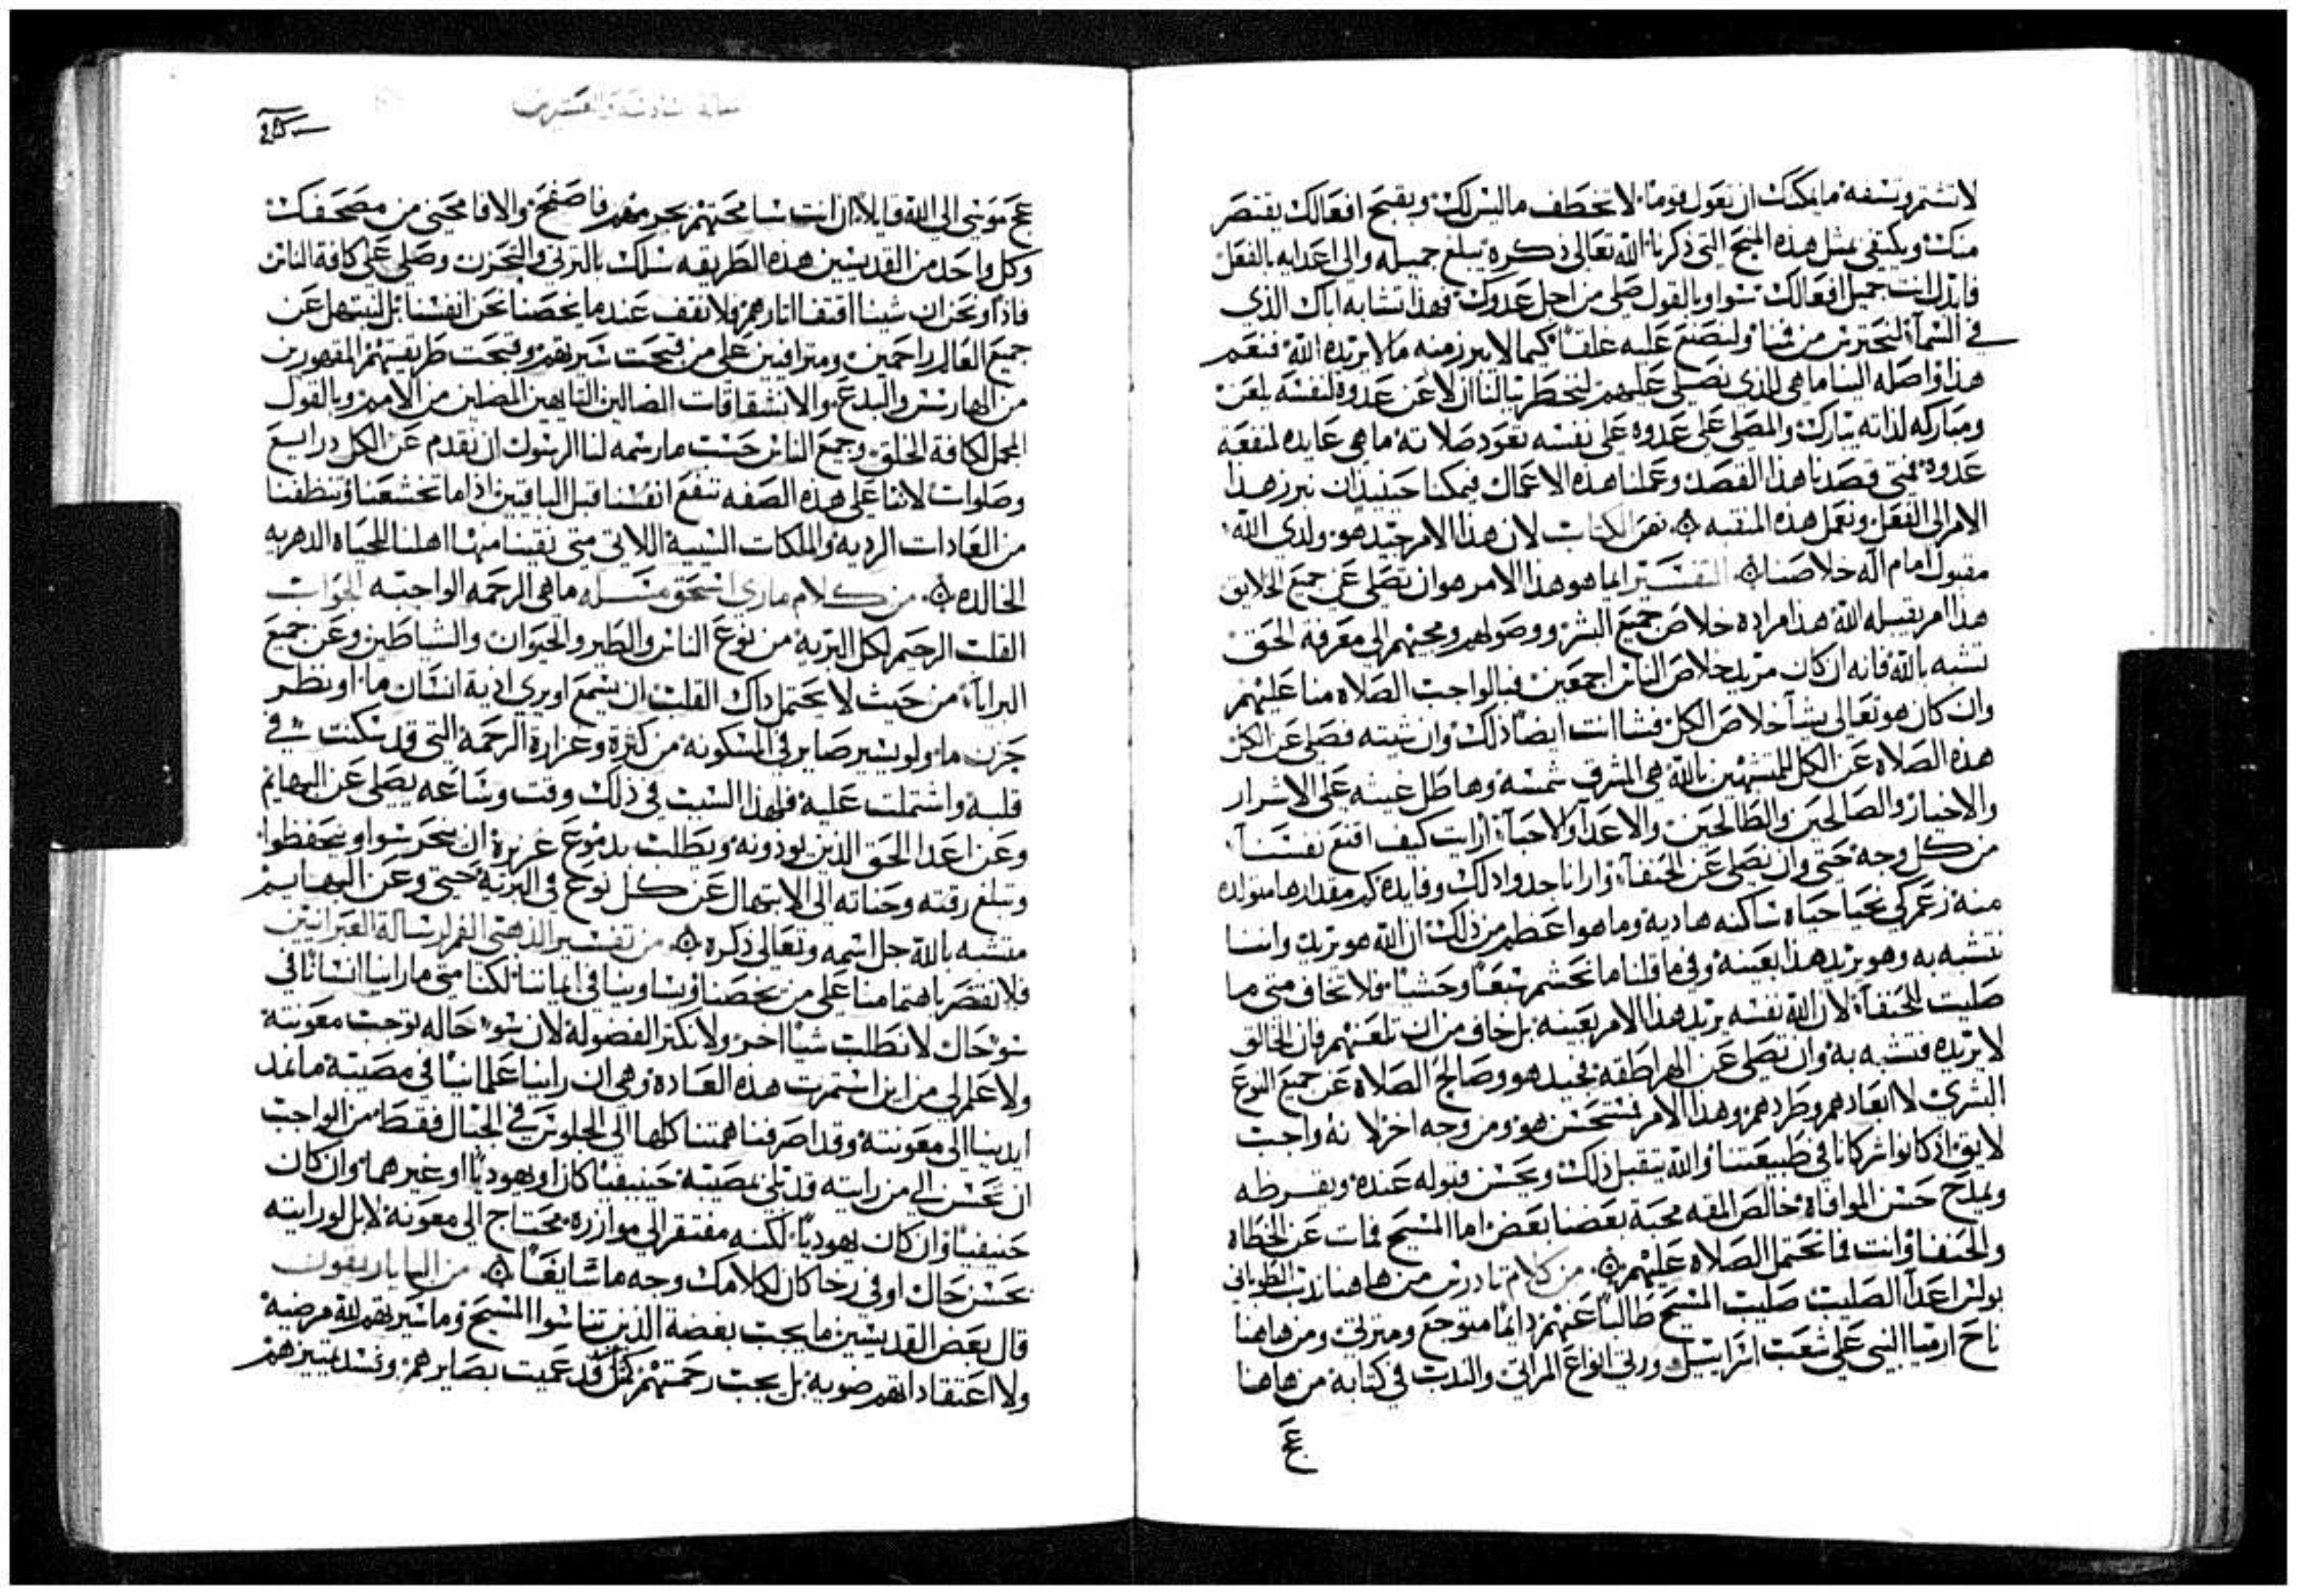 لا تشتم وتسفه ما يمكنك ان تقول قوماً لا تخطف ما ليس لك ويقبح افعالك يقتصر
منك ويكتفي بمثل هذه المنيح التي ذكرنا الله تعالى ذكره يبلغ جميله والى اعدايه بالفعل
فابدل انت جميل افعالك سوا وبالقول صلي من اجل عدوك فهذا تشابه اباك الذي
في السمآ لنحترس من فمنا ولنضع عليه غلقاً كيما لا يبرز منه ما لا يريده الله فنعم
هذا واصله الينا ما هي للذي نصلي عليهم لنخطر ببالنا ان لاعن عدوه لنفسه يلعن
ومباركه لذاته يبارك والمصلي على عدوه على نفسه تعود صلاته ما هي عايده لمنفعة
عدوه فمتى قصدنا هذا القصد وعملنا هذه الاعمال فيمكنا حينيذ ان نبرز هذا
الامر الى الفعل ونعمل هذه المنقبه نص الكتاب لان هذا الامر جيد هو ولدي الله
مقبول امام اله خلاصنا التفسير ايما هو هذا الامر هو ان تصلي عن جميع الخلايق
هذا امر يقبله الله هذا مراده خلاص جميع البشر ووصولهم ومجيهم الى معرفة الحق
تشبه بالله فانه ان كان مريد خلاص الناس اجمعين فبالواجب الصلاه منا عليهم
وان كان هو تعالى يشآ خلاص الكل فشا انت ايضاً ذلك وان شيته فصلي عن الكل
هذه الصلاه عن الكل للمتشبهين بالله هي المشرق شمسه وهاطل غيثه على الاشرار
والاخيار والصالحين والطالحين والاعدآ والاحبآ ارايت كيف اقنع نفسنآ
من كل وجه حتى وان نصلي عن الحنفآ وارانا جدوا ذلك وفايدة كم مقدارها متولده
منه زعم كي نحيا حياه ساكنه هاديه وما هو اعظم من ذلك ان الله هو يريد واننا
نتشبه به وهو يريد هذا بعينه وفي ما قلنا ما نحشم سبعاً وحشياً فلا تخاف متى ما
صليت للحنفآ لان الله نفسه يريد هذا الامر بعينه بل خاف من ان تلعنهم فان الخالق
لا يريده فتشبه به وان تصلي عن الهراطقه فجيد هو وصالح الصلاه عن جميع النوع
البشري لا ابعادهم وطردهم وهذا الامر فستحسن هو ومن وجه اخر لانه واجب
لايق اذ كانوا شركانا في طبيعتنا والله يتقبل ذلك ويحسن قبوله عنده ويقرظه
ويمدح حسن الموافاه خالص المقه محبة بعضنا بعض اما المسيح فمات عن الخطاه
والحنفا وانت فما تحتمل الصلاه عليهم من كلام تادرس من هاهنا ندب الطوباني
بولس اعدآ الصليب صليب المسيح طالباً عنهم دايماً متوجع ومترثي ومن هاهنا
ناح ارميا النبي على شعب اسراييل ورثي انواع المراثي والندب في كتابه من هاهنا
عج
عج موسى الى الله قايلا ان انت سامحتهم بجرمهم فاصفح والا فامحني من مصحفك
وكل واحد من القديسين هذه الطريقه سلك بالترثي والتحزن وصلى على كافة الناس
فاذاً ونحن ان شينا اقتفا اثارهم فلا نقف عند ما يخصنا نحن انفسنا بل لنبتهل عن
جميع العالم راحمين ومترافيين على من قبحت سيرتهم وقبحت طريقتهم المقهورين
من الهارسس والبدع والانشقاقات الضالين التايهين المضلين من الامم وبالقول
المجمل لكافة الخلق وجميع الناس حسب ما رسمه لنا الرسول ان نقدم عن الكل درايع
وصلوات لاننا على هذه الصفه ننفع انفسنا قبل الباقيين اذا ما تخشعنا وتنظفنا
من العادات الرديه والملكات السيية اللاتي متى نقينا منها اهلنا للحياه الدهريه
الخالده من كلام ماري اسحق مسله ما هي الرحمه الواجبه الجواب
القلب الرحيم لكل البرية من نوع الناس والطير والحيوان والشياطين وعن جميع
البرايا من حيث لا يحتمل ذاك القلب ان يسمع او يري اذية انسان ما او نظر
حزن ما ولو يسير صاير في المسكونه من كثرة وغزارة الرحمة التي قد سكنت في
قلبه واشتملت عليه فلهذا السبب في ذلك وقت وساعه يصلي عن البهايم
وعن اعدا الحق الذين يوذونه ويطلب بدموع غزيرة ان يتحرسوا ويتحفظوا
وتبلغ رقته وحنانه الى الابتهال عن كل نوع في البرية حتى وعن البهايم
متشبه بالله جل اسمه وتعالى ذكره من تفسير الذهبي الفم لرسالة العبرانيين
فلا نقتصر باهتمامنا على من يخصنا ويساوينا في ايماننا لكنا متى ما راينا انسانا في
سو حال لا نطلب شيا اخر ولا نكثر الفضوله لان سو حاله توجب معونته
ولا علم لي من اين استمرت هذه العاده وهي ان راينا علمانيا في مصيبة ما نمد
ايدينا الى معونته وقد اصرفنا همتنا كلها الى الجلوس في الجبال فقط من الواجب
ان تحسن الى من رايته قد بلي بمصيبة حنيفيا كان او يهوديا او غيرهما وان كان
حنيفيا وان كان يهوديا لكنه مفتقر الى موازره محتاج الى معونة لا بل لو رايته
بحسن حال او في رخا كان لكلامك وجه ما شايغاً من الباباريقون
قال بعض القديسين ما يجب بغضة الذين تناسوا المسيح وما سيرتهم لله مرضيه
ولا اعتقاداتهم ضويه بل يجب رحمتهم كمثل قد عميت بصايرهم وفسد تمييزهم